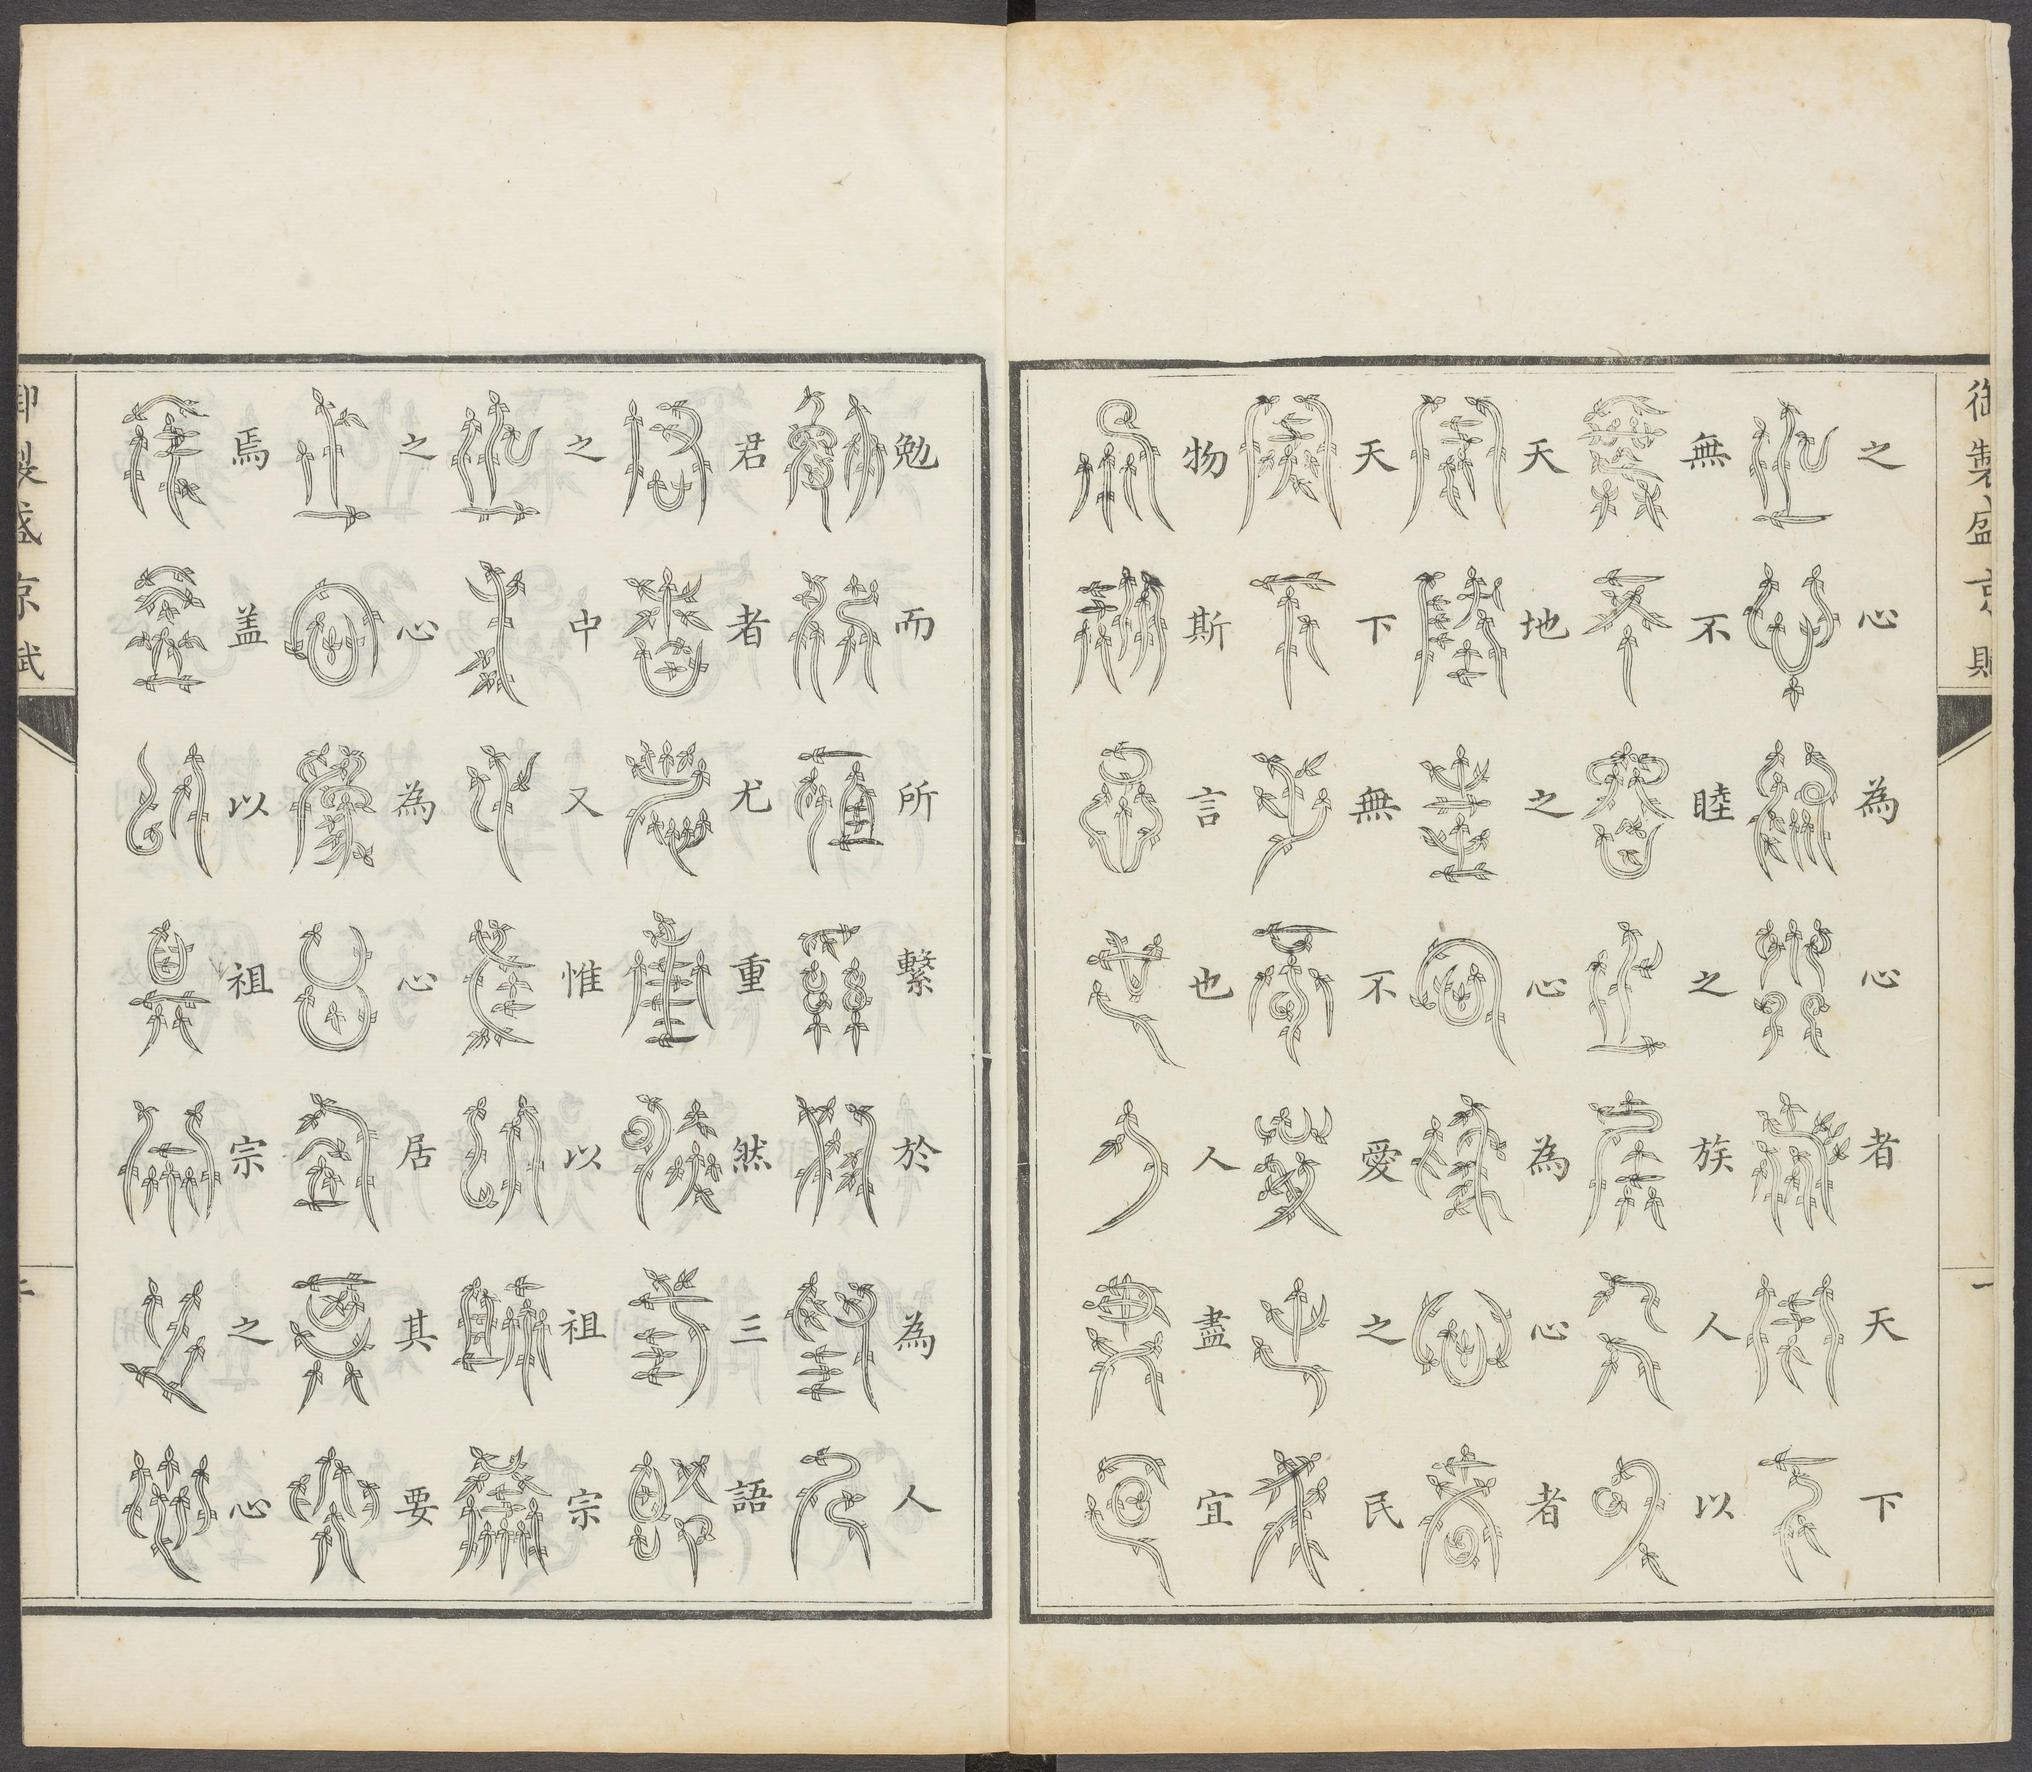 御製盛京賦
一
之心為心者天下
無不睦之族人以
天地之心為心者
天下無不愛之民
物斯言也人盡宜
勉而所繫於為人
君者尤重然三語
之中又惟以祖宗
之心為心居其要
焉蓋以祖宗之心
御製盛京賦